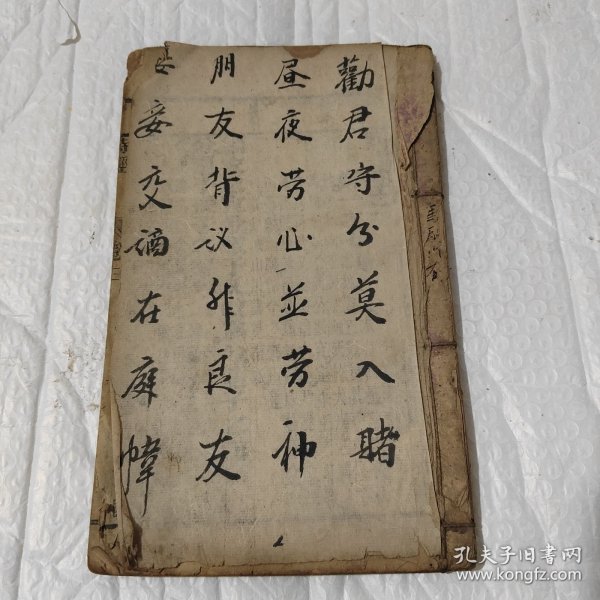 勸君守分莫入賭
昼夜劳心並劳神
朋友背议非良友
妾交谪在庭幃
詩經
孔夫子旧书网
www.kongfz.com